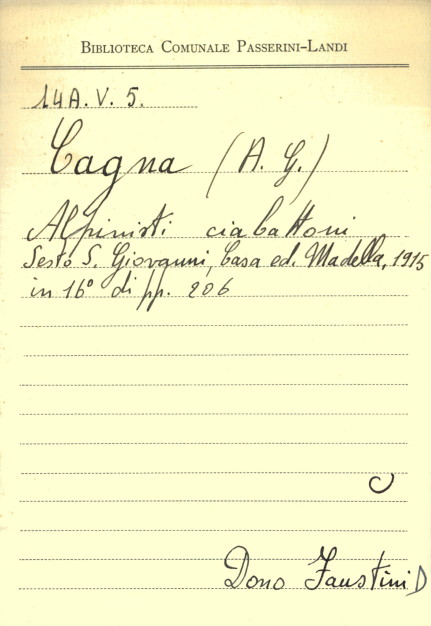 BIBLIOTECA COMUNALE PASSERINI-LANDI
14A.V.5.
Cagna (A. G.)
Alpinisti ciabattoni
Sesto S. Giovanni, Casa ed. Madella, 1915
in 16° di pp. 206
Dono Faustini D